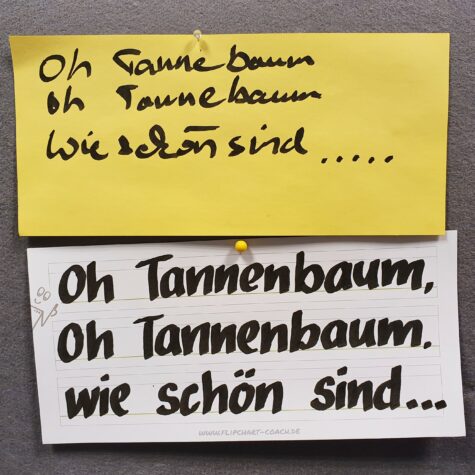 Oh Tannebaum
oh Tannebaum
Wie schön sind .....
Oh Tannenbaum,
Oh Tannenbaum.
wie schön sind...
WWW.FLIPCHART-COACH.DE